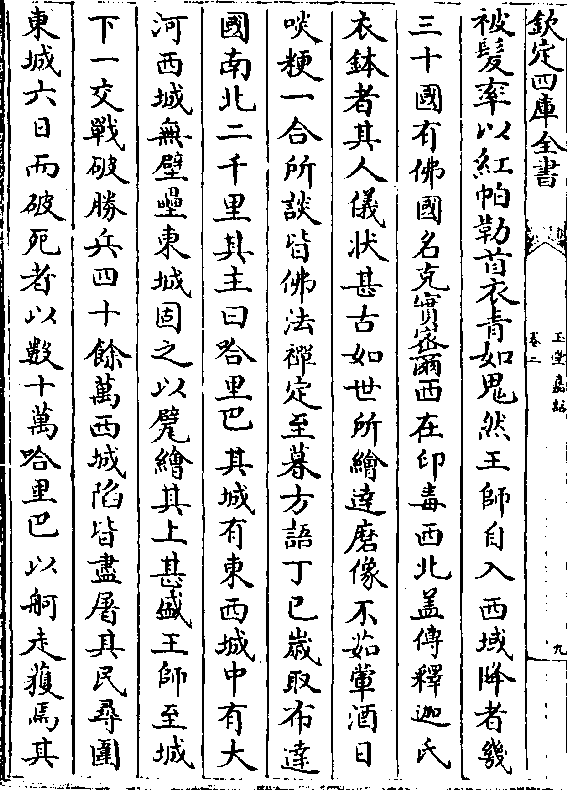 欽定四庫全書
玉堂嘉話
卷二
九
被髮率以紅帕勒首衣青如鬼然王師自入西域降者幾
三十國有佛國名克實密爾西在印毒西北盖傳釋迦氏
衣鉢者其人儀狀甚古如世所繪達磨像不茹葷酒日
啖粳一合所談皆佛法禪定至暮方語丁巳歲取布達
國南北二千里其主曰哈里巴其城有東西城中有大
河西城無壁壘東城固之以甓繪其上甚盛王師至城
下一交戰破勝兵四十餘萬西城陷皆盡屠其民尋圍
東城六日而破死者以數十萬哈里巴以舸走獲焉其